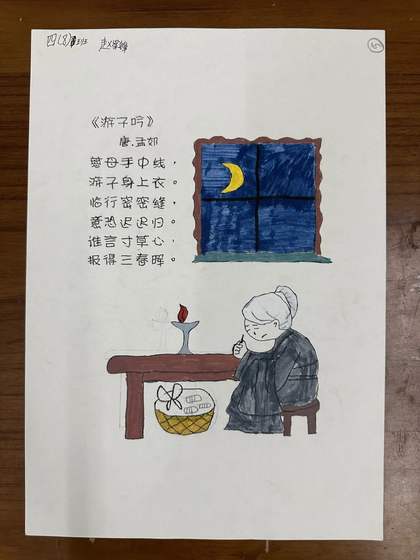 四(8)班
《游子吟》
唐.孟郊
慈母手中线，
游子身上衣。
临行密密缝，
意恐迟迟归。
谁言寸草心，
报得三春晖。